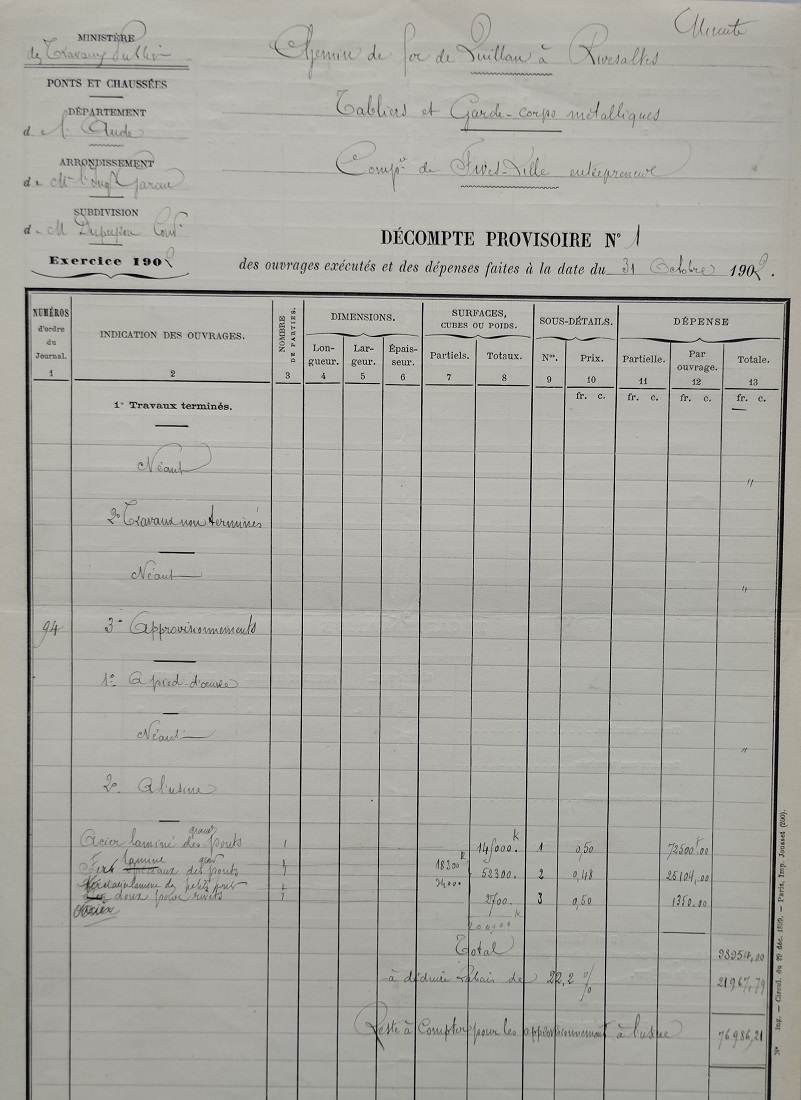 Minute
MINISTÈRE
des Travaux Publics
PONTS ET CHAUSSÉES
DÉPARTEMENT
de l'Aude
ARRONDISSEMENT
de M. l'Ingr
SUBDIVISION
de M
Exercice 1902
Chemin de fer de Quillan à Rivesaltes
Tabliers et Garde-corps métalliques
Compie de Fives-Lille entrepreneur
DÉCOMPTE PROVISOIRE N° 1
des ouvrages exécutés et des dépenses faites à la date du 31 Octobre 1902.
NUMÉROS d'ordre du Journal. 1
INDICATION DES OUVRAGES. 2
NOMBRE DE PARTIES. 3
DIMENSIONS.
Longueur. 4
Largeur. 5
Épaisseur. 6
SURFACES, CUBES OU POIDS.
Partiels. 7
Totaux. 8
SOUS-DÉTAILS.
Nos. 9
Prix. 10
DÉPENSE
Partielle. 11
Par ouvrage. 12
Totale. 13
fr. c. fr. c. fr. c. fr. c.
1° Travaux terminés.
Néant "
2° Travaux non terminés
Néant "
94 3° Approvisionnements
1° A pied-d'œuvre
Néant "
2° A l'usine
Acier laminé des grands ponts 145000.k 1 0,50 72500f.00
18300k
Fers spéciaux des ponts 52300. 2 0,48 25104,00
34000
doux pour rivets 2700. 3 0,50 1350.00
200,000k
Total 98954,00
à déduire Rabais de 22,2 % 21967,79
Reste à Compter pour les approvisionnements à l'usine 76986,21
N° Ing. — Circul. du 29 déc. 1899. — Paris, Imp. Jousset (200).